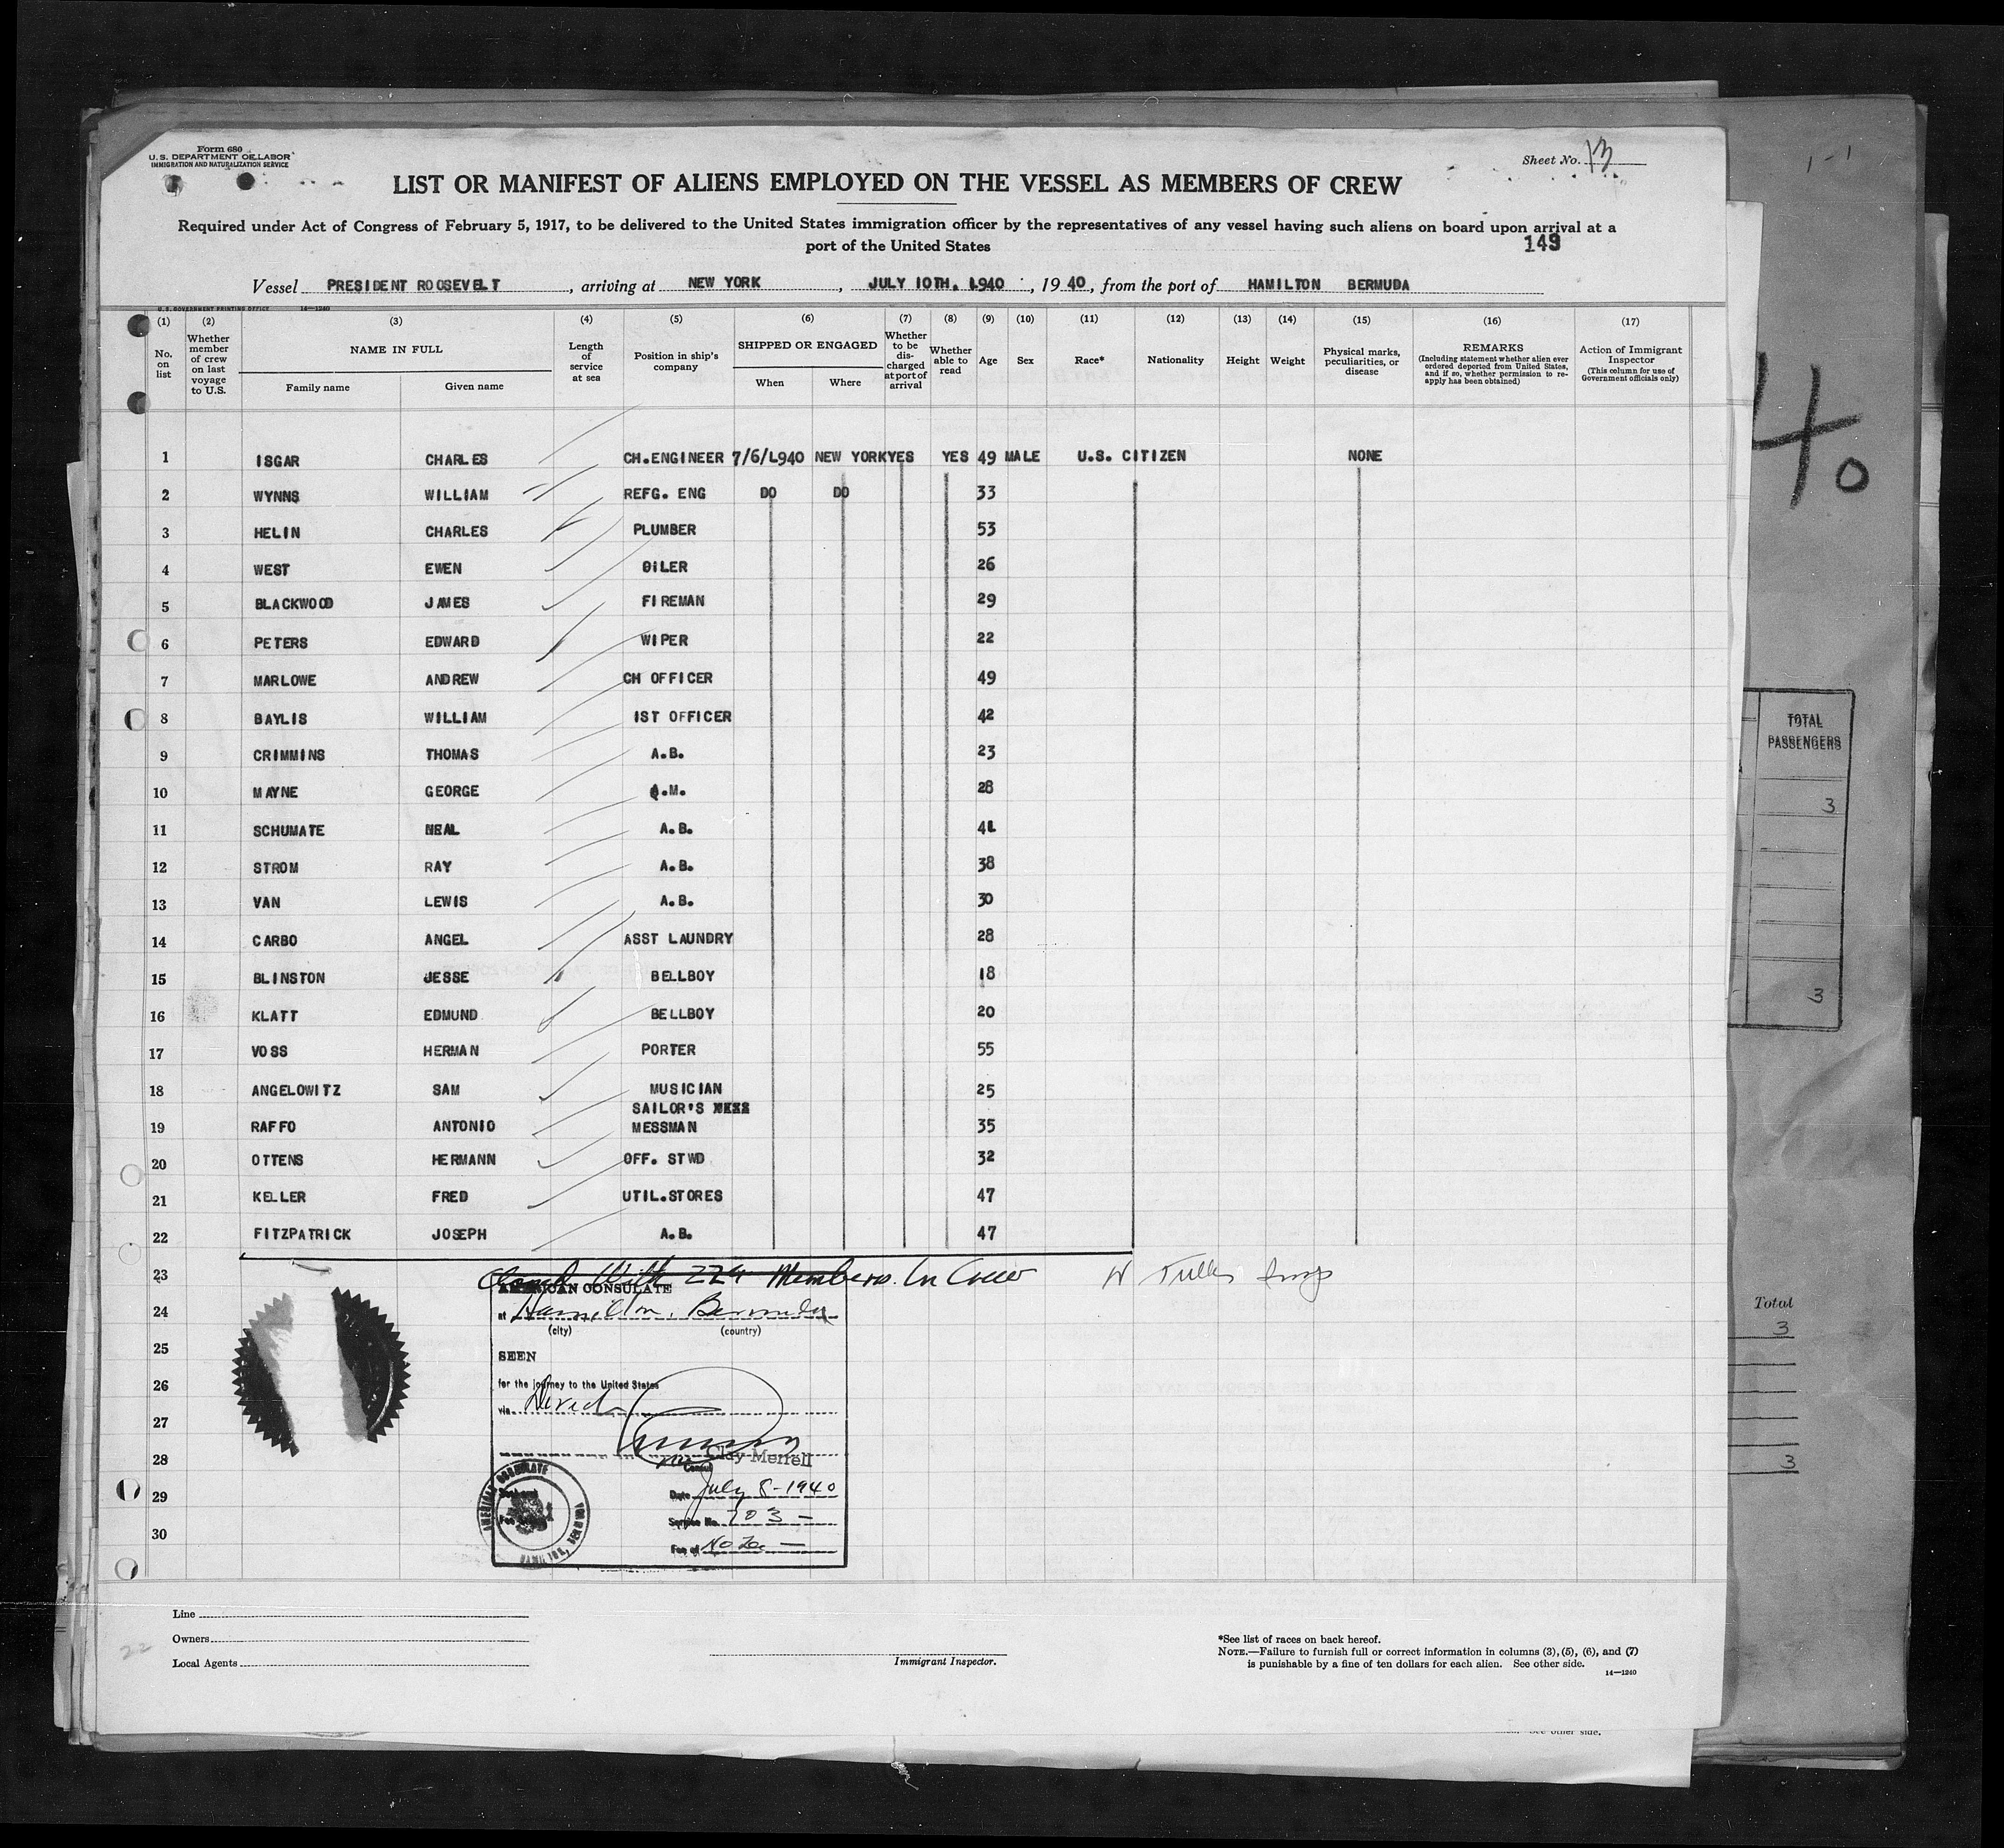 Form 680
U. S. DEPARTMENT OF LABOR
IMMIGRATION AND NATURALIZATION SERVICE
Sheet No. 13
LIST OR MANIFEST OF ALIENS EMPLOYED ON THE VESSEL AS MEMBERS OF CREW
Required under Act of Congress of February 5, 1917, to be delivered to the United States immigration officer by the representatives of any vessel having such aliens on board upon arrival at a
port of the United States
143
Vessel PRESIDENT ROOSEVELT, arriving at NEW YORK, JULY 10TH. 1940, 19 40, from the port of HAMILTON BERMUDA
U. S. GOVERNMENT PRINTING OFFICE 14—1240
(1) (2) (3) (4) (5) (6) (7) (8) (9) (10) (11) (12) (13) (14) (15) (16) (17)
No. on list
Whether member of crew on last voyage to U.S.
NAME IN FULL
Family name Given name
Length of service at sea
Position in ship's company
SHIPPED OR ENGAGED
When Where
Whether to be discharged at port of arrival
Whether able to read
Age Sex Race* Nationality Height Weight
Physical marks, peculiarities, or disease
REMARKS
(Including statement whether alien ever ordered deported from United States, and if so, whether permission to reapply has been obtained)
Action of Immigrant Inspector
(This column for use of Government officials only)
1 ISGAR CHARLES CH.ENGINEER 7/6/1940 NEW YORK YES YES 49 MALE U.S. CITIZEN NONE
2 WYNNS WILLIAM REFG. ENG DO DO 33
3 HELIN CHARLES PLUMBER 53
4 WEST EWEN OILER 26
5 BLACKWOOD JAMES FIREMAN 29
6 PETERS EDWARD WIPER 22
7 MARLOWE ANDREW CH OFFICER 49
8 BAYLIS WILLIAM 1ST OFFICER 42
9 CRIMMINS THOMAS A.B. 23
10 MAYNE GEORGE Q.M. 28
11 SCHUMATE NEAL A.B. 41
12 STROM RAY A.B. 38
13 VAN LEWIS A.B. 30
14 CARBO ANGEL ASST LAUNDRY 28
15 BLINSTON JESSE BELLBOY 18
16 KLATT EDMUND BELLBOY 20
17 VOSS HERMAN PORTER 55
18 ANGELOWITZ SAM MUSICIAN 25
SAILOR'S
19 RAFFO ANTONIO MESSMAN 35
20 OTTENS HERMANN OFF. STWD 32
21 KELLER FRED UTIL.STORES 47
22 FITZPATRICK JOSEPH A.B. 47
23 Closed With 224 Members In Crew
AMERICAN CONSULATE
24 at Hamilton, Bermuda
(city) (country)
25 SEEN
26 for the journey to the United States
27 via Direct
28 Clay Merrell
Consul
29 Date July 8-1940
Service No. 703 —
30 Fee of No fee —
AMERICAN CONSULATE
Line
Owners
Local Agents
22
Immigrant Inspector.
*See list of races on back hereof.
NOTE.—Failure to furnish full or correct information in columns (3), (5), (6), and (7)
is punishable by a fine of ten dollars for each alien. See other side.
14—1240
See other side.
1-1
TOTAL
PASSENGERS
3
3
Total
3
3